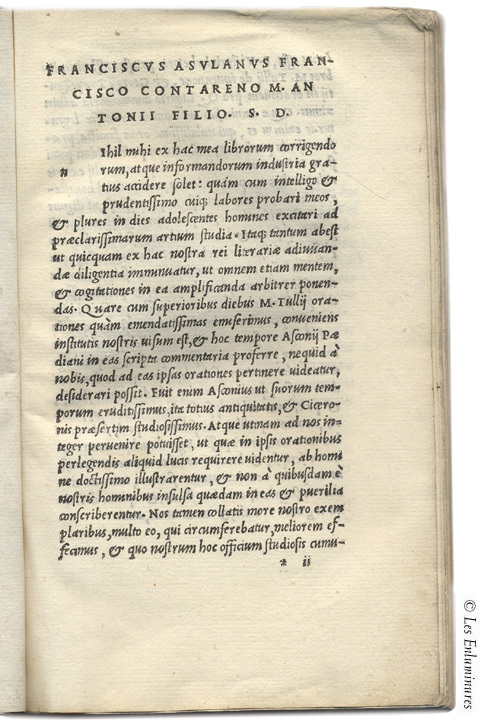 FRANCISCVS ASVLANVS FRAN-
CISCO CONTARENO M. AN
TONII FILIO. S. D.
Ihil mihi ex hac mea librorum corrigendo
n rum, atque informandorum industria gra-
tius accidere solet: quám cum intelligo &
prudentissimo cuiq; labores probari meos,
& plures in dies adolescentes homines excitari ad
præclarissimarum artium studia. Itaq; tantum abest
ut quicquam ex hac nostra rei literariæ adiuuan-
dæ diligentia imminuatur, ut omnem etiam mentem,
& cogitationes in ea amplificanda arbitrer ponen-
das. Quare cum superioribus diebus M. Tullij ora-
tiones quàm emendatissimas emiserimus, conueniens
institutis nostris uisum est, & hoc tempore Asconij Pæ
diani in eas scripta commentaria proferre, nequid à
nobis, quod ad eas ipsas orationes pertinere uideatur,
desiderari possit. Fuit enim Asconius ut suorum tem-
porum eruditissimus, ita totius antiquitatis, & Cicero-
nis præsertim studiosissimus. Atque utinam ad nos in-
teger peruenire potuisset, ut quæ in ipsis orationibus
perlegendis aliquid lucis requirere uidentur, ab homi
ne doctissimo illustrarentur, & non à quibusdam è
nostris hominibus insulsa quædam in eas & puerilia
conscriberentur. Nos tamen collatis more nostro exem
plaribus, multo eo, qui circumferebatur, meliorem ef-
fecimus, & quo nostrum hoc officium studiosis cumu-
2 ii
© Les Enluminures